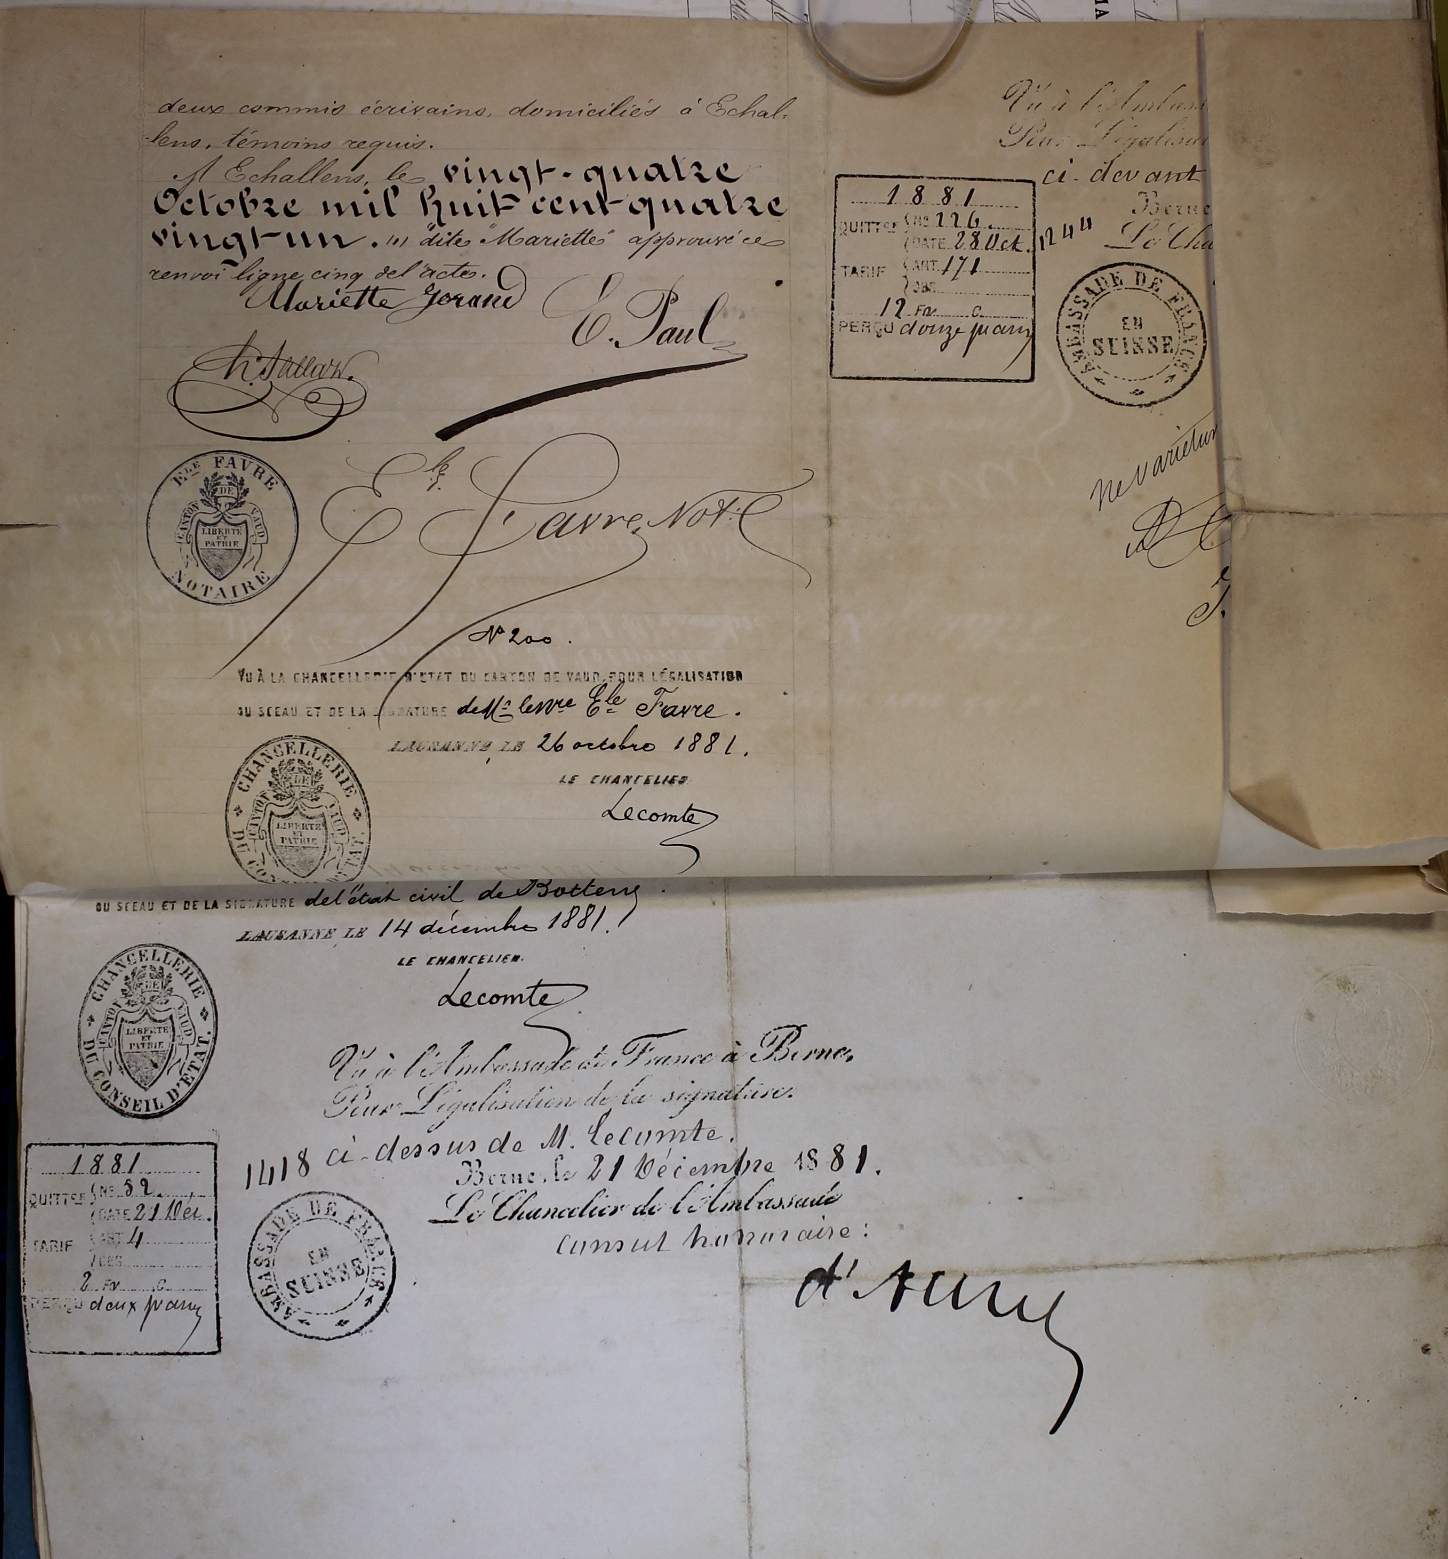 deux commis écrivains, domiciliés à Echal-
lens, témoins requis.
A Echallens, le vingt-quatre
Octobre mil huit cent quatre
vingt-un. (1) "dite Mariette" approuvé ce
renvoi ligne cinq de l'acte.
Mariette Jorand
E. Paul
Ele Favre Not.
ELE FAVRE
NOTAIRE
CANTON DE VAUD
LIBERTÉ
ET
PATRIE
No 200.
VU À LA CHANCELLERIE D'ETAT DU CANTON DE VAUD, POUR LÉGALISATION
DU SCEAU ET DE LA SIGNATURE de Mr le Ele Favre.
LAUSANNE, LE 26 octobre 1881.
LE CHANCELIER
Lecomte
CHANCELLERIE
DU CONSEIL D'ETAT.
CANTON DE VAUD
LIBERTÉ
ET
PATRIE
Vu à l'Ambas
Pour Légalisa
ci-devant
Berne
1244 Le Cha
1881
QUITTCE No 226.
DATE 28 Oct.
TARIF ART. 171
OBS.
12 FR. C.
PERÇU douze francs
AMBASSADE DE FRANCE
EN
SUISSE
Ne varietur
DU SCEAU ET DE LA SIGNATURE de l'état civil de Bottens.
LAUSANNE, LE 14 décembre 1881.
LE CHANCELIER.
Lecomte
CHANCELLERIE
DU CONSEIL D'ETAT.
CANTON DE VAUD
LIBERTÉ
ET
PATRIE
Vu à l'Ambassade de France à Berne,
Pour Légalisation de la signature
ci-dessus de M. Lecomte.
1418
Berne, le 21 Décembre 1881.
Le Chancelier de l'Ambassade
consul honoraire:
1881
QUITTCE No 82.
DATE 21 Déc.
TARIF ART. 4
OBS.
2 FR. C.
PERÇU deux francs
AMBASSADE DE FRANCE
EN
SUISSE